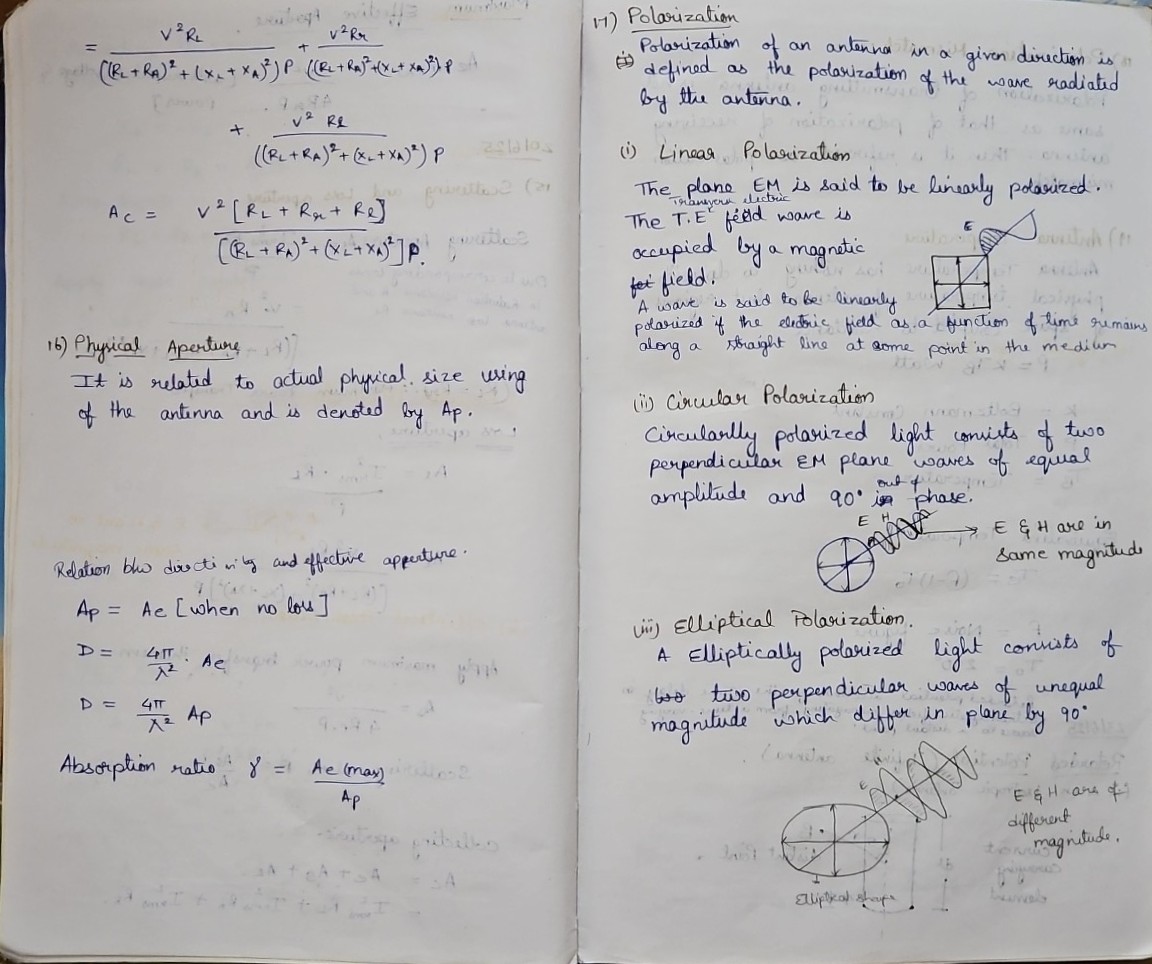 = V²RL / ((RL+RA)² + (XL+XA)²) P + V²Rr / ((RL+RA)²+(XL+XA)²) P
+ V² Rl / ((RL+RA)² + (XL+XA)²) P
Ac = V² [RL + Rr + Rl] / [(RL+RA)² + (XL+XA)²] P.
16) Physical Aperture
It is related to actual physical size using
of the antenna and is denoted by Ap.
Relation b/w directivity and effective apperture.
Ap = Ae [when no loss]
D = 4π/λ² · Ae
D = 4π/λ² Ap
Absorption ratio : γ = Ae(max) / Ap
17) Polarization
Polarization of an antenna in a given direction is
defined as the polarization of the wave radiated
by the antenna.
(i) Linear Polarization
The plane EM is said to be linearly polarized.
Transverse electric
The T.E field wave is
occupied by a magnetic
field.
E
A wave is said to be linearly
polarized if the electric field as a function of time remains
along a straight line at some point in the medium
(ii) Circular Polarization
Circularlly polarized light consists of two
perpendicular EM plane waves of equal
amplitude and 90° out of phase.
E H
E & H are in
same magnitude
(iii) Elliptical Polarization.
A Elliptically polarized light consists of
two perpendicular waves of unequal
magnitude which differ in plane by 90°
E H
E & H are of
different
magnitude.
Elliptical shape